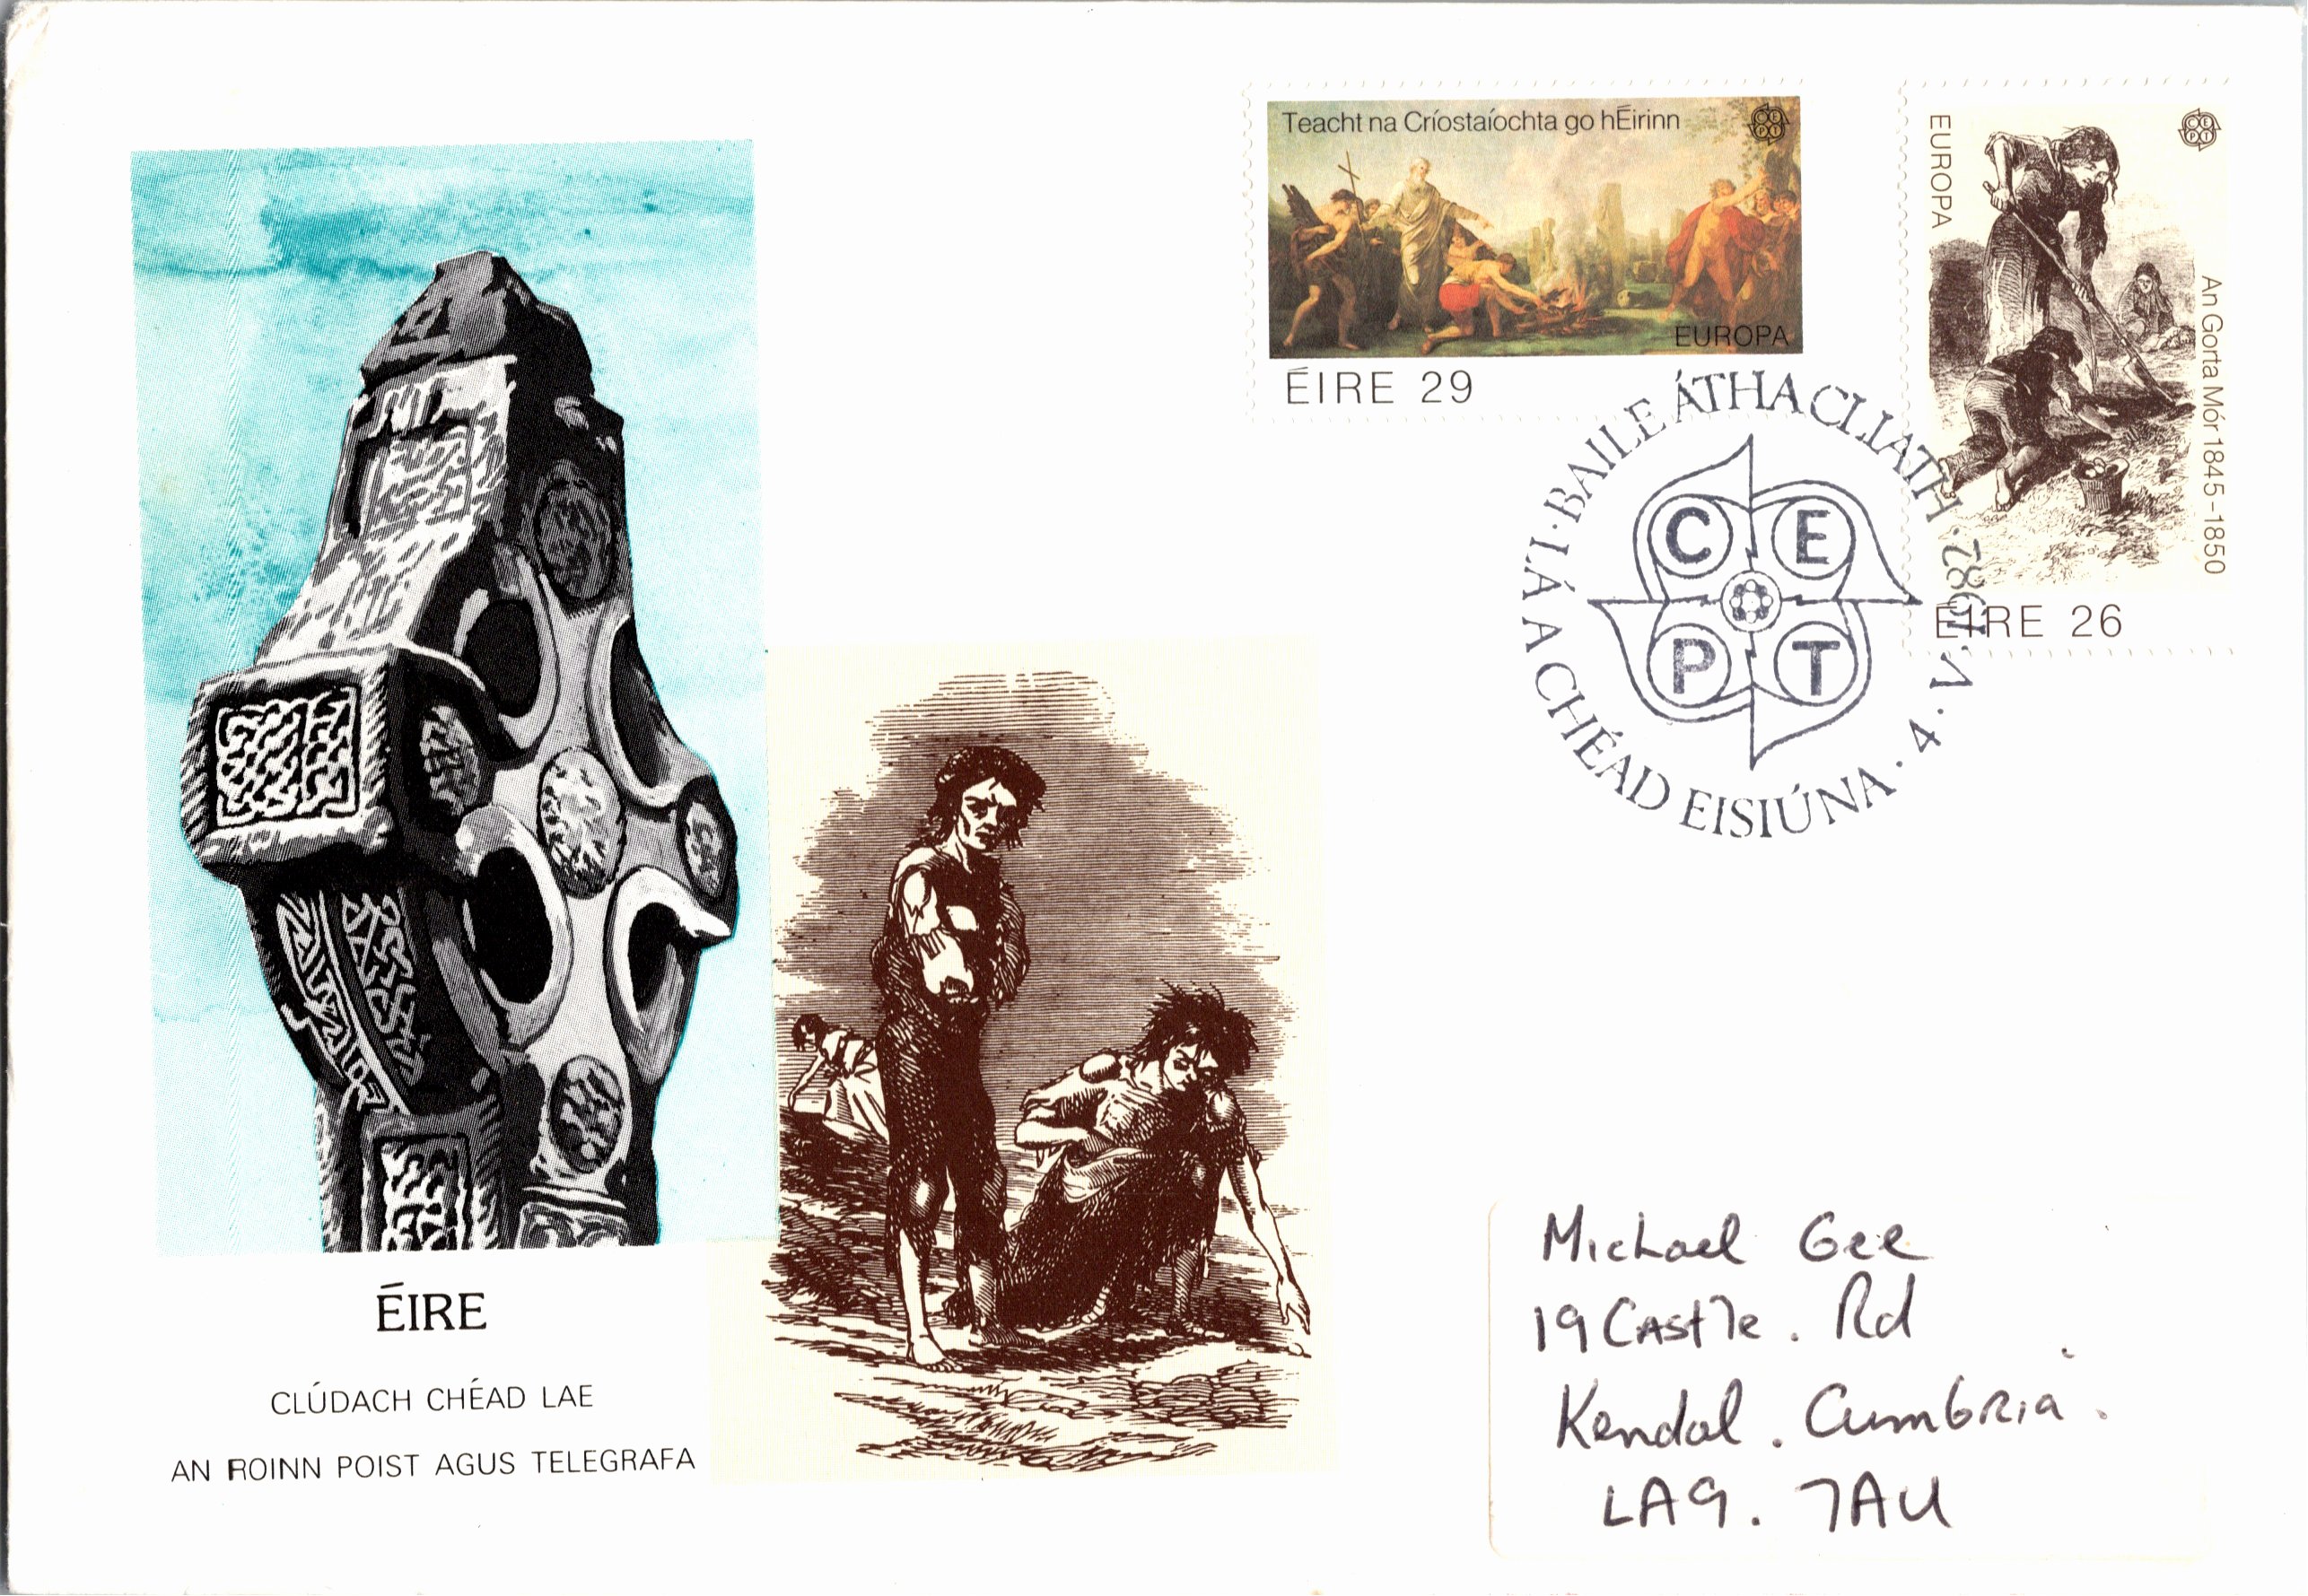 Teacht na Críostaíochta go hÉirinn
EUROPA
ÉIRE 29
EUROPA
An Gorta Mór 1845-1850
ÉIRE 26
LÁ A CHÉAD EISIÚNA · 4 · V · 1982 · BAILE ÁTHA CLIATH ·
C E
P T
ÉIRE
CLÚDACH CHÉAD LAE
AN ROINN POIST AGUS TELEGRAFA
Michael Gee
19 Castle . Rd
Kendal . Cumbria .
LA9 . 7AU